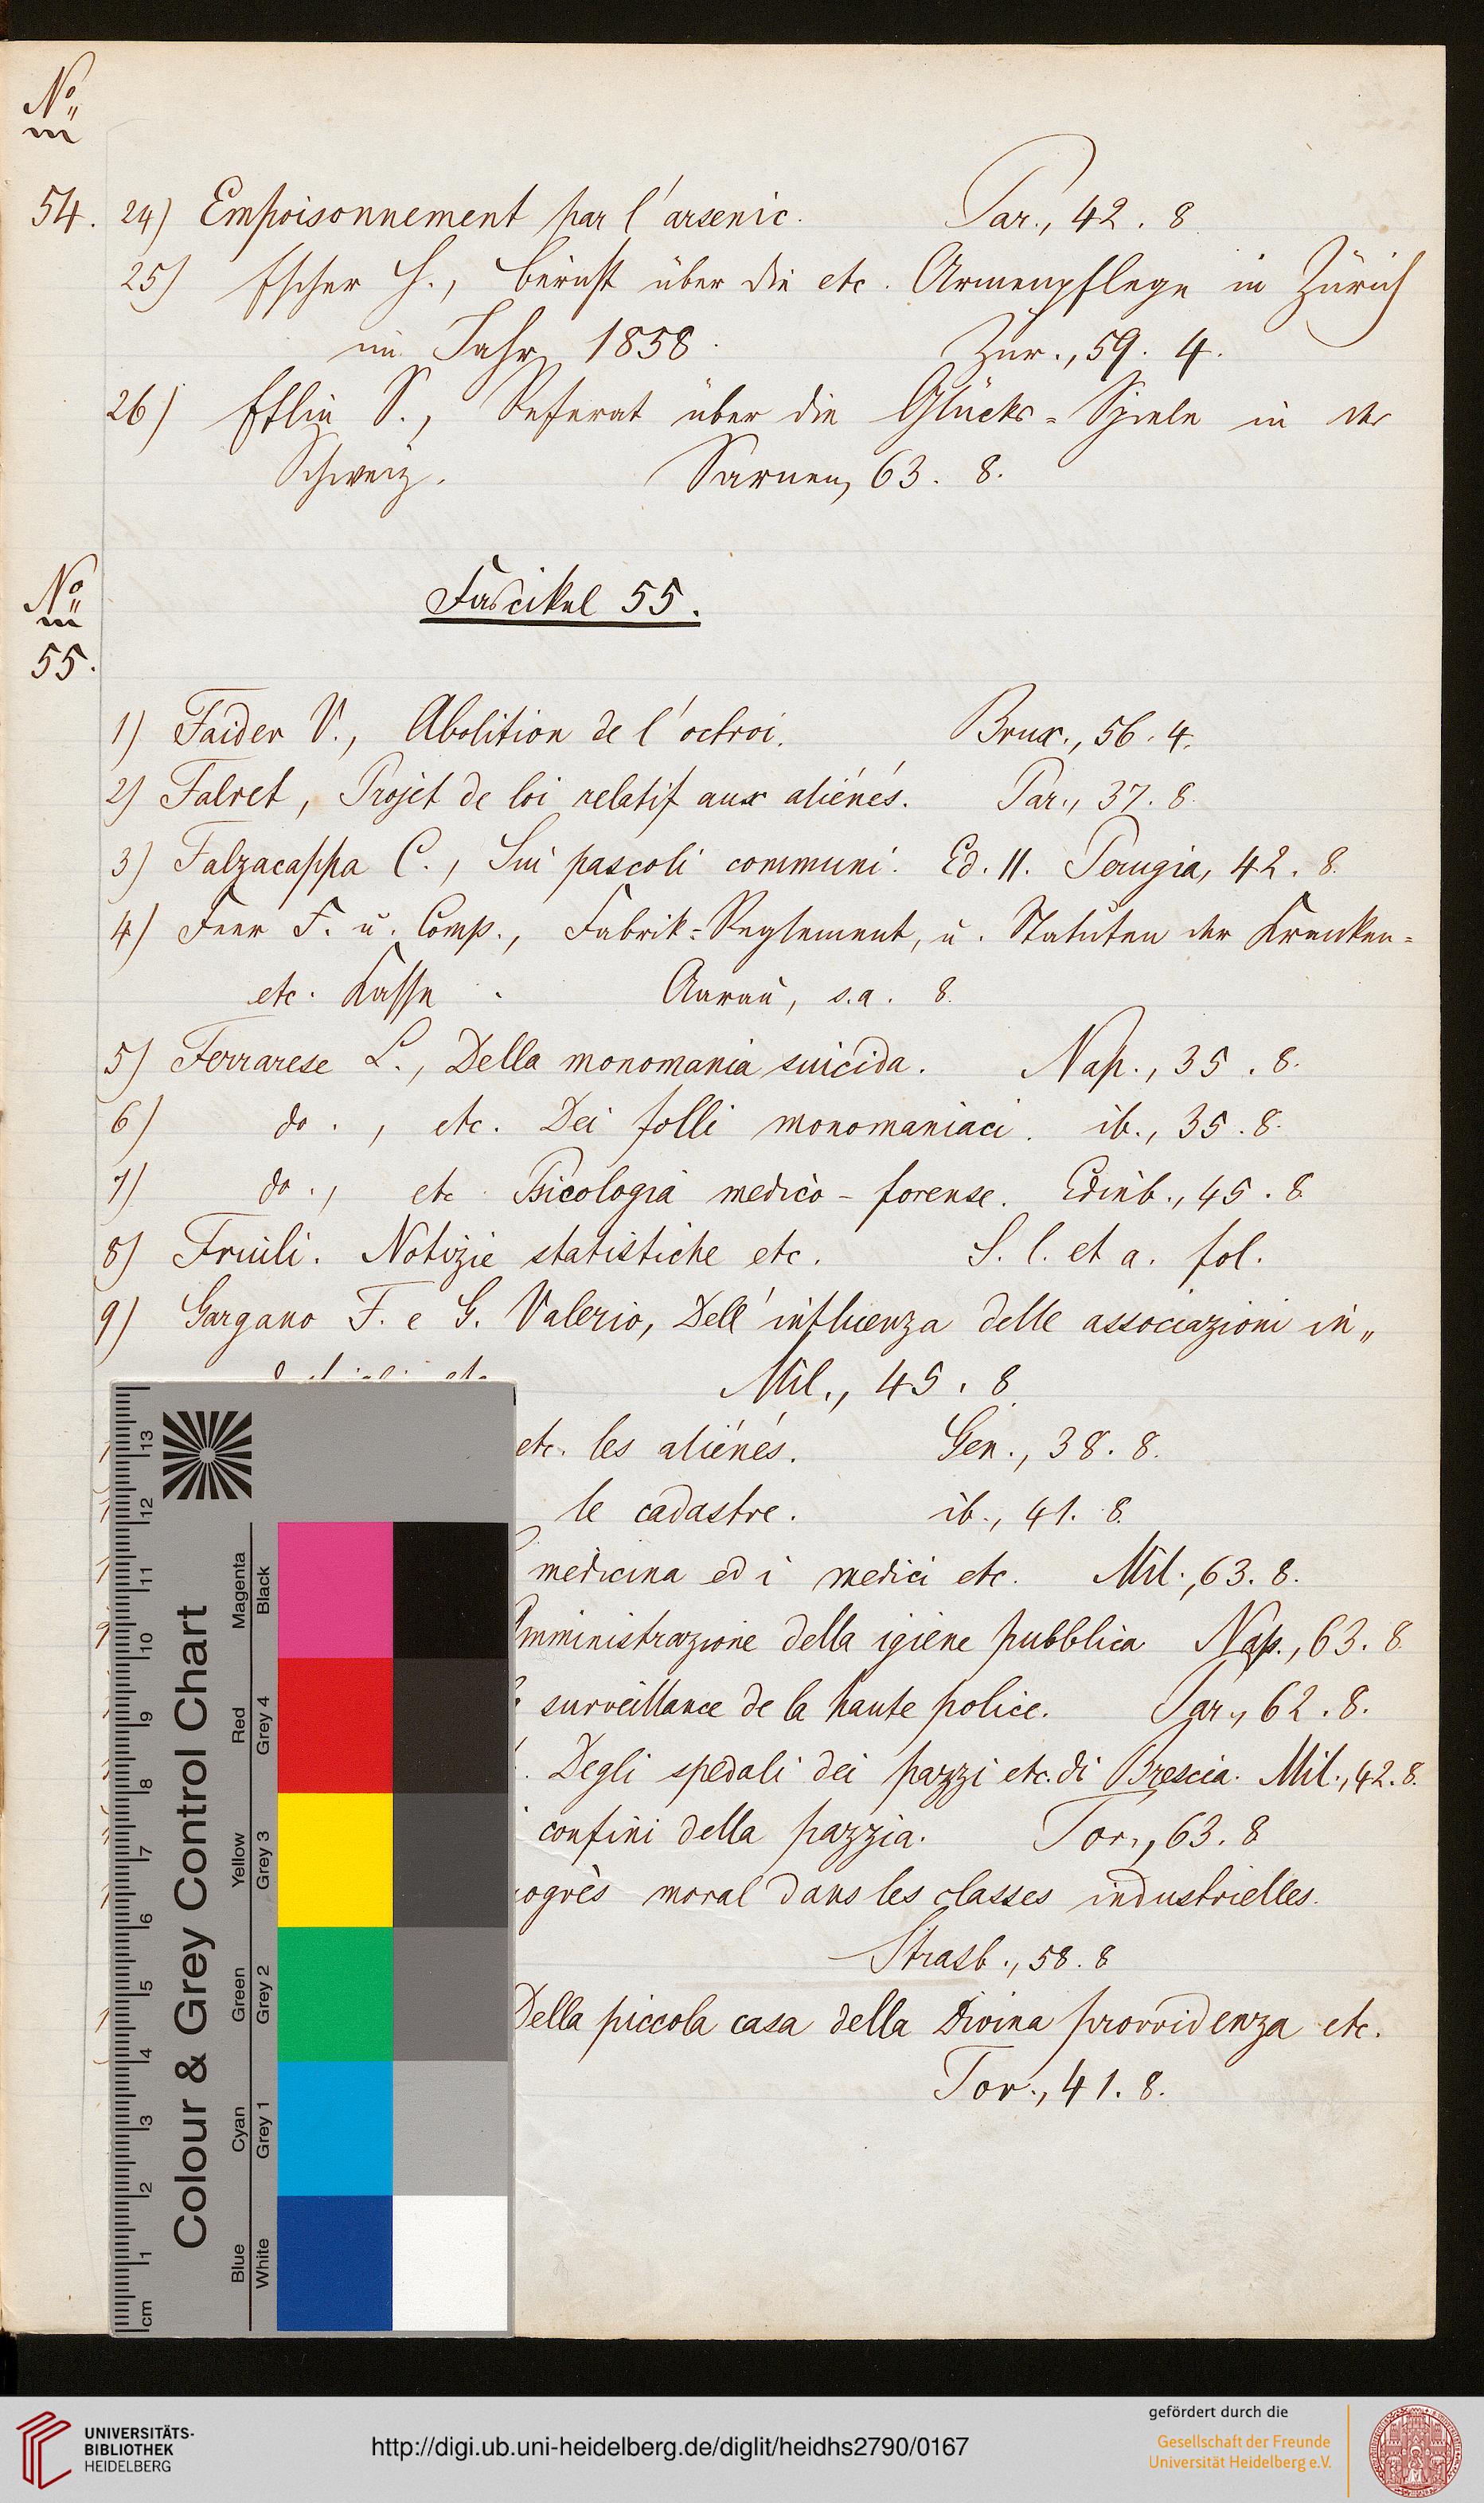 No
54. 24) Empoisonnement par l'arsenic. Par., 42. 8
25) Escher H., Bericht über die etc. Armenpflege in Zürich
im Jahr 1858. Zür., 59. 4.
26) Etlin S., Referat über die Glücks=Spiele in der
Schweiz. Sarnen, 63. 8.
No
Fascikel 55.
55.
1) Faider V., Abolition de l'octroi. Brux., 56. 4.
2) Falret, Projet de loi relatif aux aliénés. Par., 37. 8.
3) Falzacappa C., Sui pascoli communi. Ed. II. Perugia, 42. 8.
4) Feer F. u. Comp., Fabrik=Reglement, u. Statuten der Kranken=
etc. Kasse. Aarau, s.a. 8.
5) Ferrarese L., Della monomania suicida. Nap., 35. 8.
6) do., etc. Dei folli monomaniaci. ib., 35. 8.
7) do., etc Psicologia medico-forense. Edinb., 45. 8
8) Friuli. Notizie statistiche etc. S. l. et a. fol.
9) Gargano F. e G. Valerio, Dell'influenza delle associazioni in„
Mil., 45. 8
etc. les aliénés. Gen., 38. 8.
le cadastre. ib., 41. 8.
medicina ed i medici etc. Mil., 63. 8.
mministrazione della igiene pubblica Nap., 63. 8
surveillance de la haute police. Par., 62. 8.
Degli spedali dei pazzi etc. di Brescia. Mil., 42. 8.
confini della pazzia. Tor., 63. 8
ogrès moral dans les classes industrielles.
Strasb., 58. 8
Della piccola casa della Divina provvidenza etc.
Tor., 41. 8.
Colour & Grey Control Chart
Magenta Black
Red Grey 4
Yellow Grey 3
Green Grey 2
Cyan Grey 1
Blue White
13
12
11
10
9
8
7
6
5
4
3
2
1
cm
UNIVERSITÄTS-
BIBLIOTHEK
HEIDELBERG
http://digi.ub.uni-heidelberg.de/diglit/heidhs2790/0167
gefördert durch die
Gesellschaft der Freunde
Universität Heidelberg e.V.